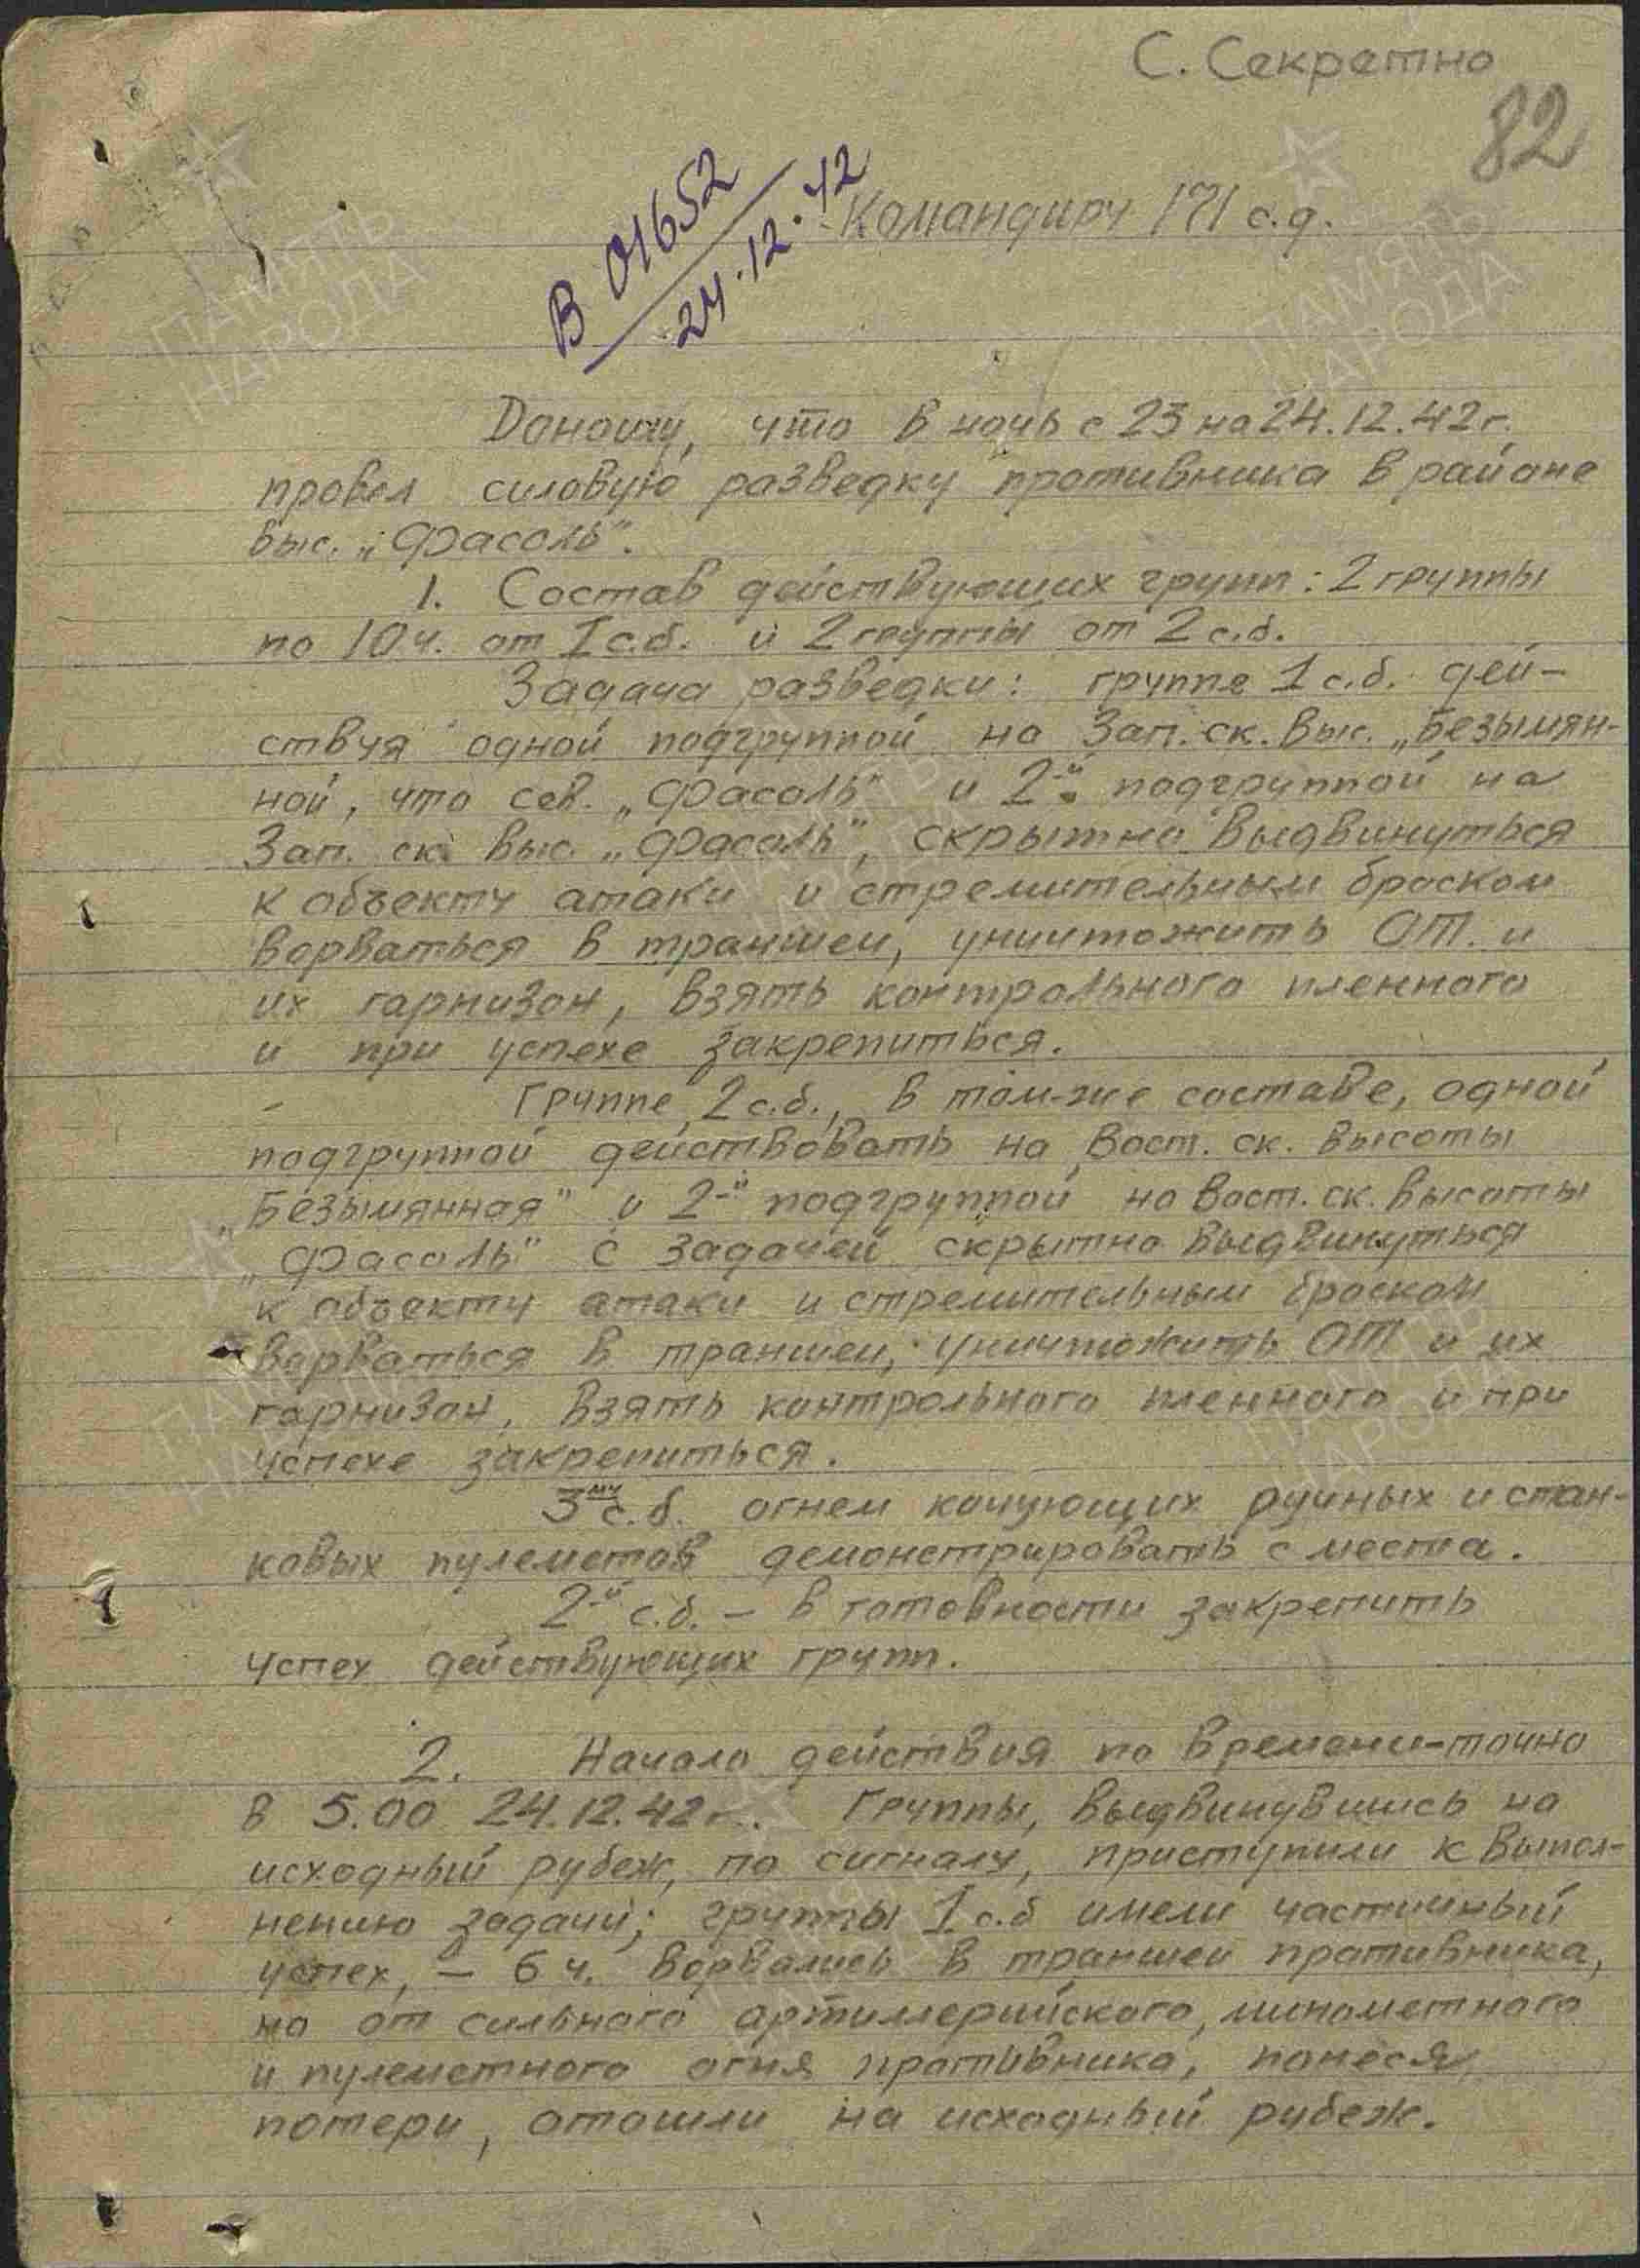 С. Секретно
82
В 01652
24.12.42
Командиру 171 с.д.
Доношу, что в ночь с 23 на 24.12.42 г.
провел силовую разведку противника в районе
выс. „Фасоль".
1. Состав действующих групп: 2 группы
по 10 ч. от I с.б. и 2 группы от 2 с.б.
Задача разведки: группе 1 с.б. дей-
ствуя одной подгруппой на Зап. ск. выс. „Безымян-
ной, что сев. „Фасоль" и 2-й подгруппой на
Зап. ск. выс. „Фасоль", скрытно выдвинуться
к объекту атаки и стремительным броском
ворваться в траншеи, уничтожить ОТ. и
их гарнизон, взять контрольного пленного
и при успехе закрепиться.
Группе 2 с.б., в том-же составе, одной
подгруппой действовать на Вост. ск. высоты
„Безымянная" и 2-й подгруппой на Вост. ск. высоты
„Фасоль" с задачей скрытно выдвинуться
к объекту атаки и стремительным броском
ворваться в траншеи, уничтожить ОТ и их
гарнизон, взять контрольного пленного и при
успехе закрепиться.
3му с.б. огнем кочующих ручных и стан-
ковых пулеметов демонстрировать с места.
2-й с.б. – в готовности закрепить
успех действующих групп.
2. Начало действия по времени – точно
в 5.00 24.12.42 г. Группы, выдвинувшись на
исходный рубеж, по сигналу, приступили к выпол-
нению задачи; группы I с.б имели частичный
успех, – 6 ч. ворвались в траншеи противника,
но от сильного артиллерийского, минометного
и пулеметного огня противника, понеся
потери, отошли на исходный рубеж.
ПАМЯТЬ
НАРОДА